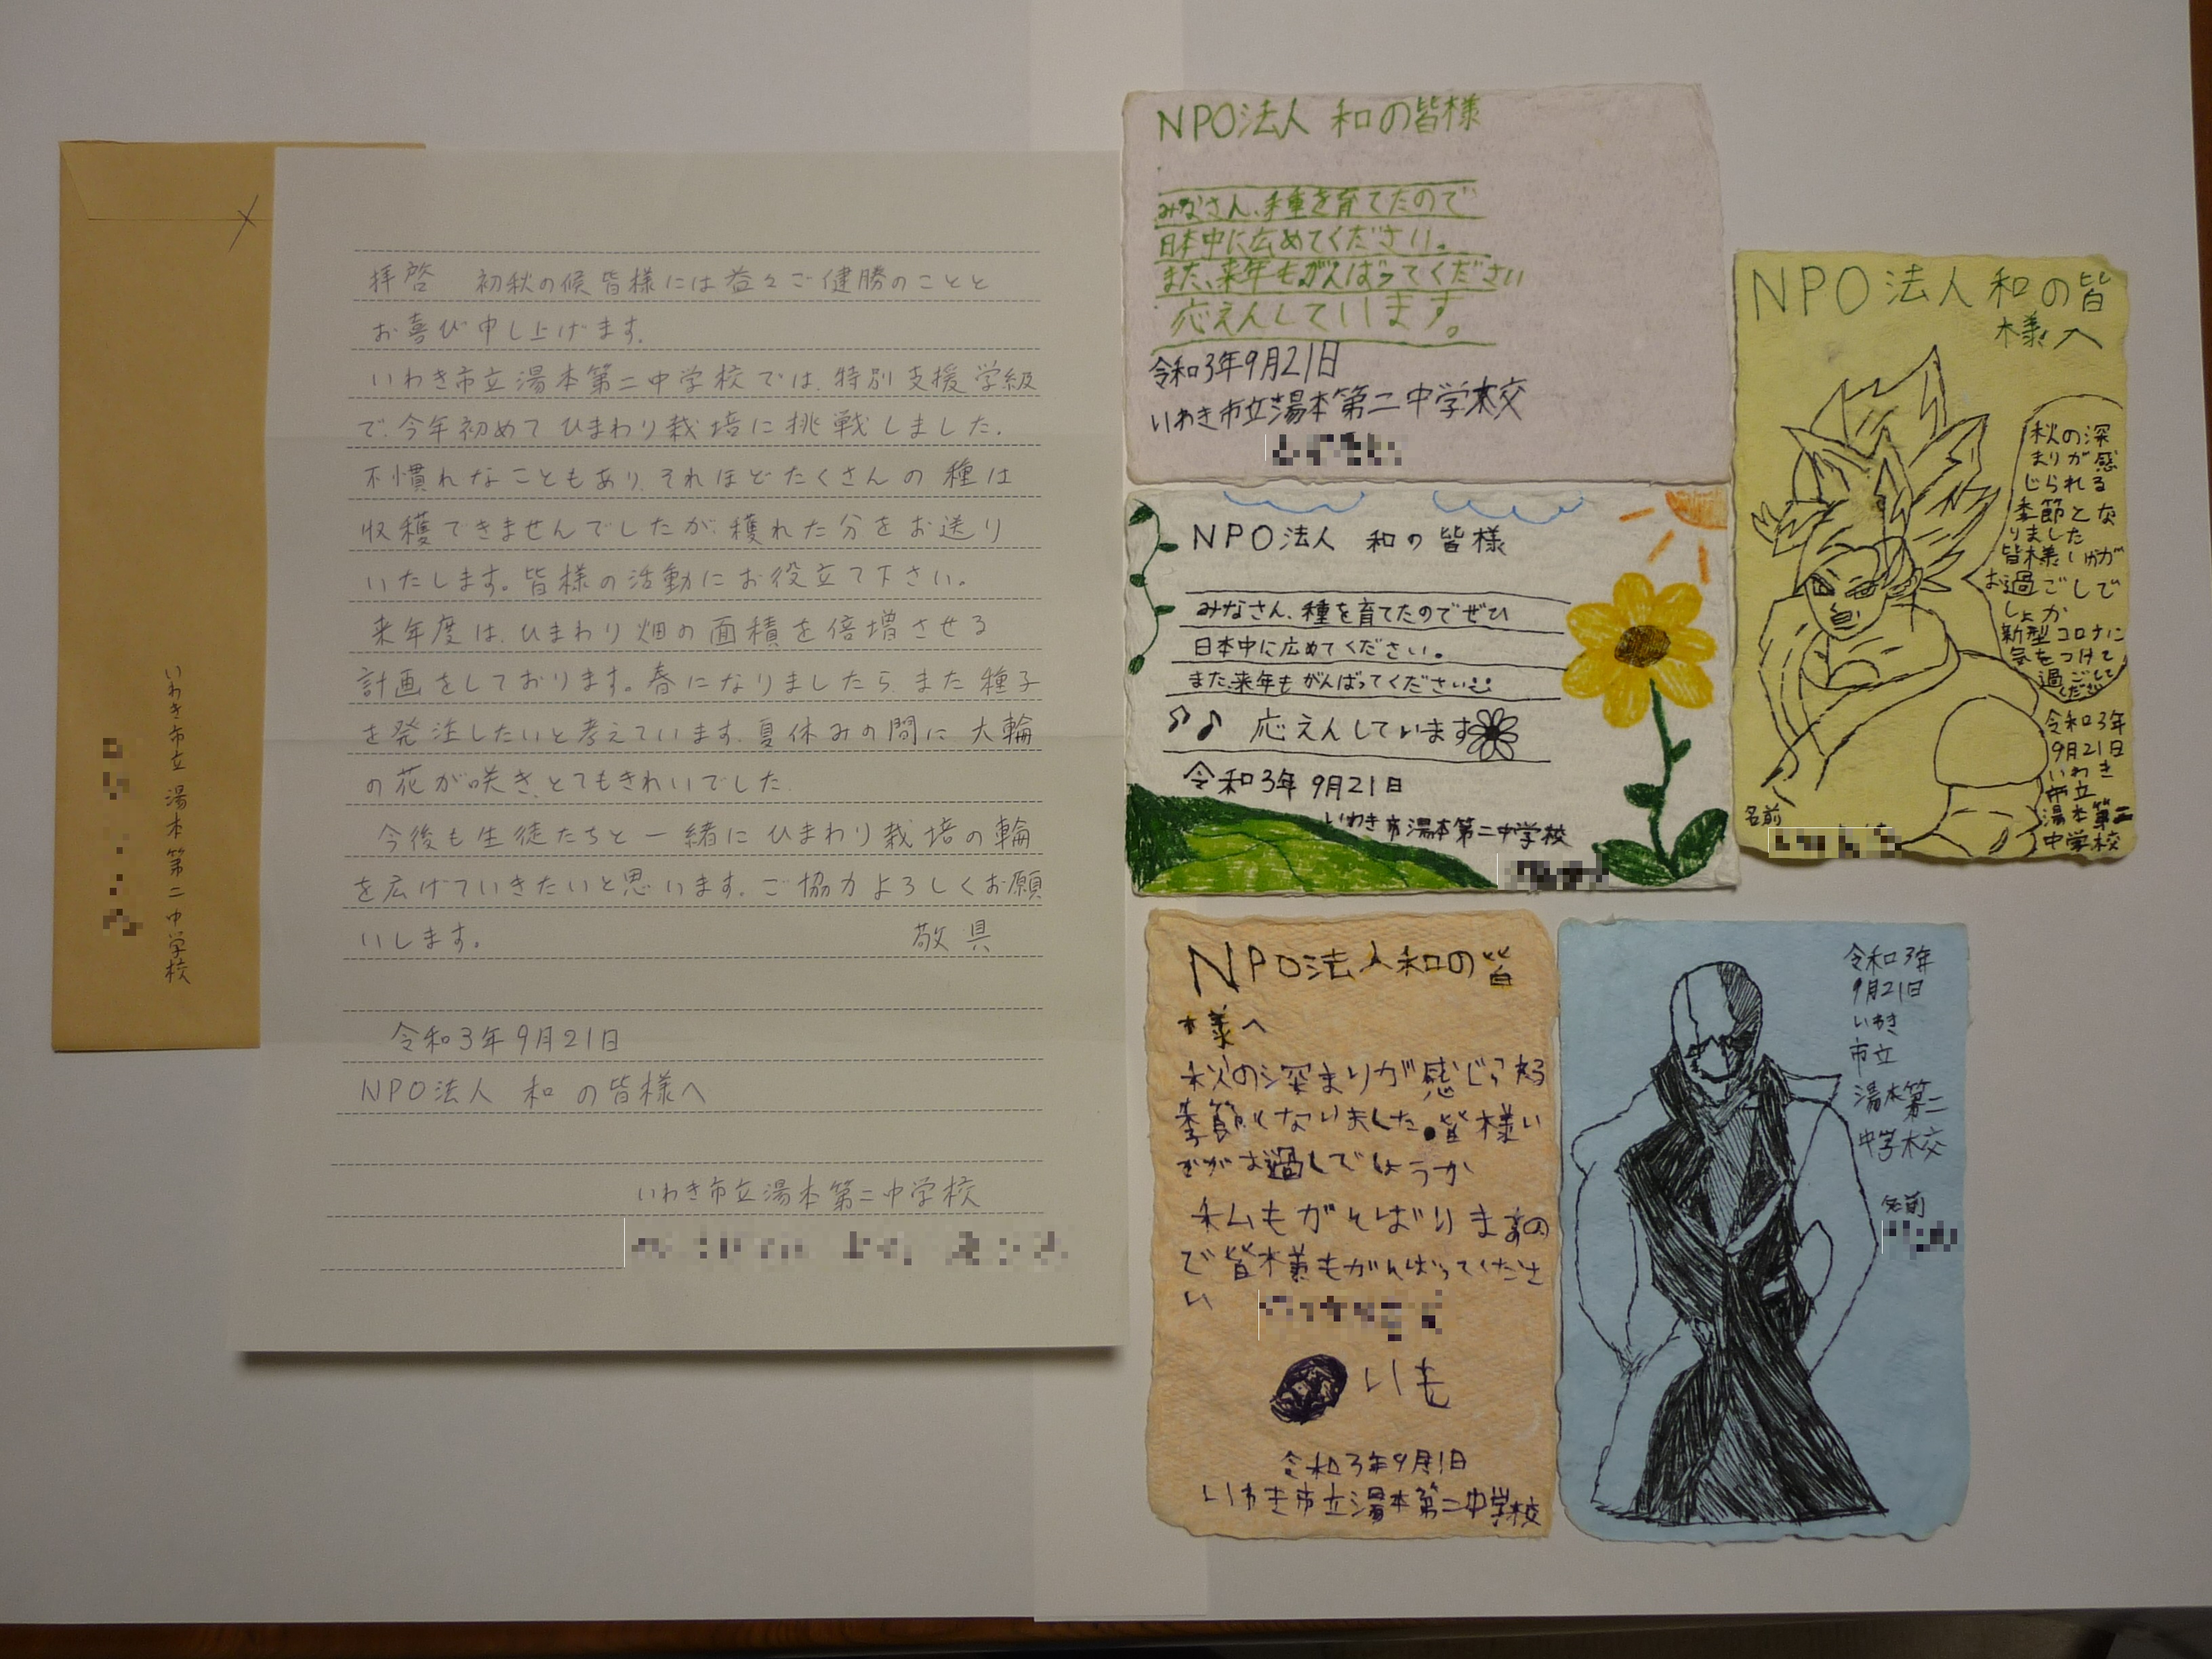 いわき市立湯本第二中学校
拝啓　初秋の候皆様には益々ご健勝のことと
お喜び申し上げます。
いわき市立湯本第二中学校では、特別支援学級
で、今年初めてひまわり栽培に挑戦しました。
不慣れなこともあり、それほどたくさんの種は
収穫できませんでしたが、穫れた分をお送り
いたします。皆様の活動にお役立て下さい。
来年度は、ひまわり畑の面積を倍増させる
計画をしております。春になりましたら、また種子
を発注したいと考えています。夏休みの間に、大輪
の花が咲き、とてもきれいでした。
今後も生徒たちと一緒にひまわり栽培の輪
を広げていきたいと思います。ご協力よろしくお願
いします。　敬具
令和3年9月21日
NPO法人　和　の皆様へ
いわき市立湯本第二中学校
NPO法人 和の皆様
みなさん、種を育てたので
日本中に広めてください。
また、来年もがんばってください
応えんしています。
令和3年9月21日
いわき市立湯本第二中学校
NPO法人　和の皆様
みなさん、種を育てたのでぜひ
日本中に広めてください。
また、来年もがんばってください
応えんしています
令和3年9月21日
いわき市湯本第二中学校
NPO法人和の皆
様へ
秋の深
まりが感
じられる
季節とな
りました
皆様いかが
お過ごしで
しょか
新型コロナに
気をつけて
過ごして
ください
令和3年
9月21日
いわき
市立
湯本第二
中学校
名前
NPO法人和の皆
様へ
秋の深まりが感じられる
季節になりました。皆様い
かがお過しでしょうか
私もがんばりますの
で皆様もがんばってくださ
い
いも
令和3年9月1日
いわき市立湯本第二中学校
令和3年
9月21日
いわき
市立
湯本第二
中学校
名前